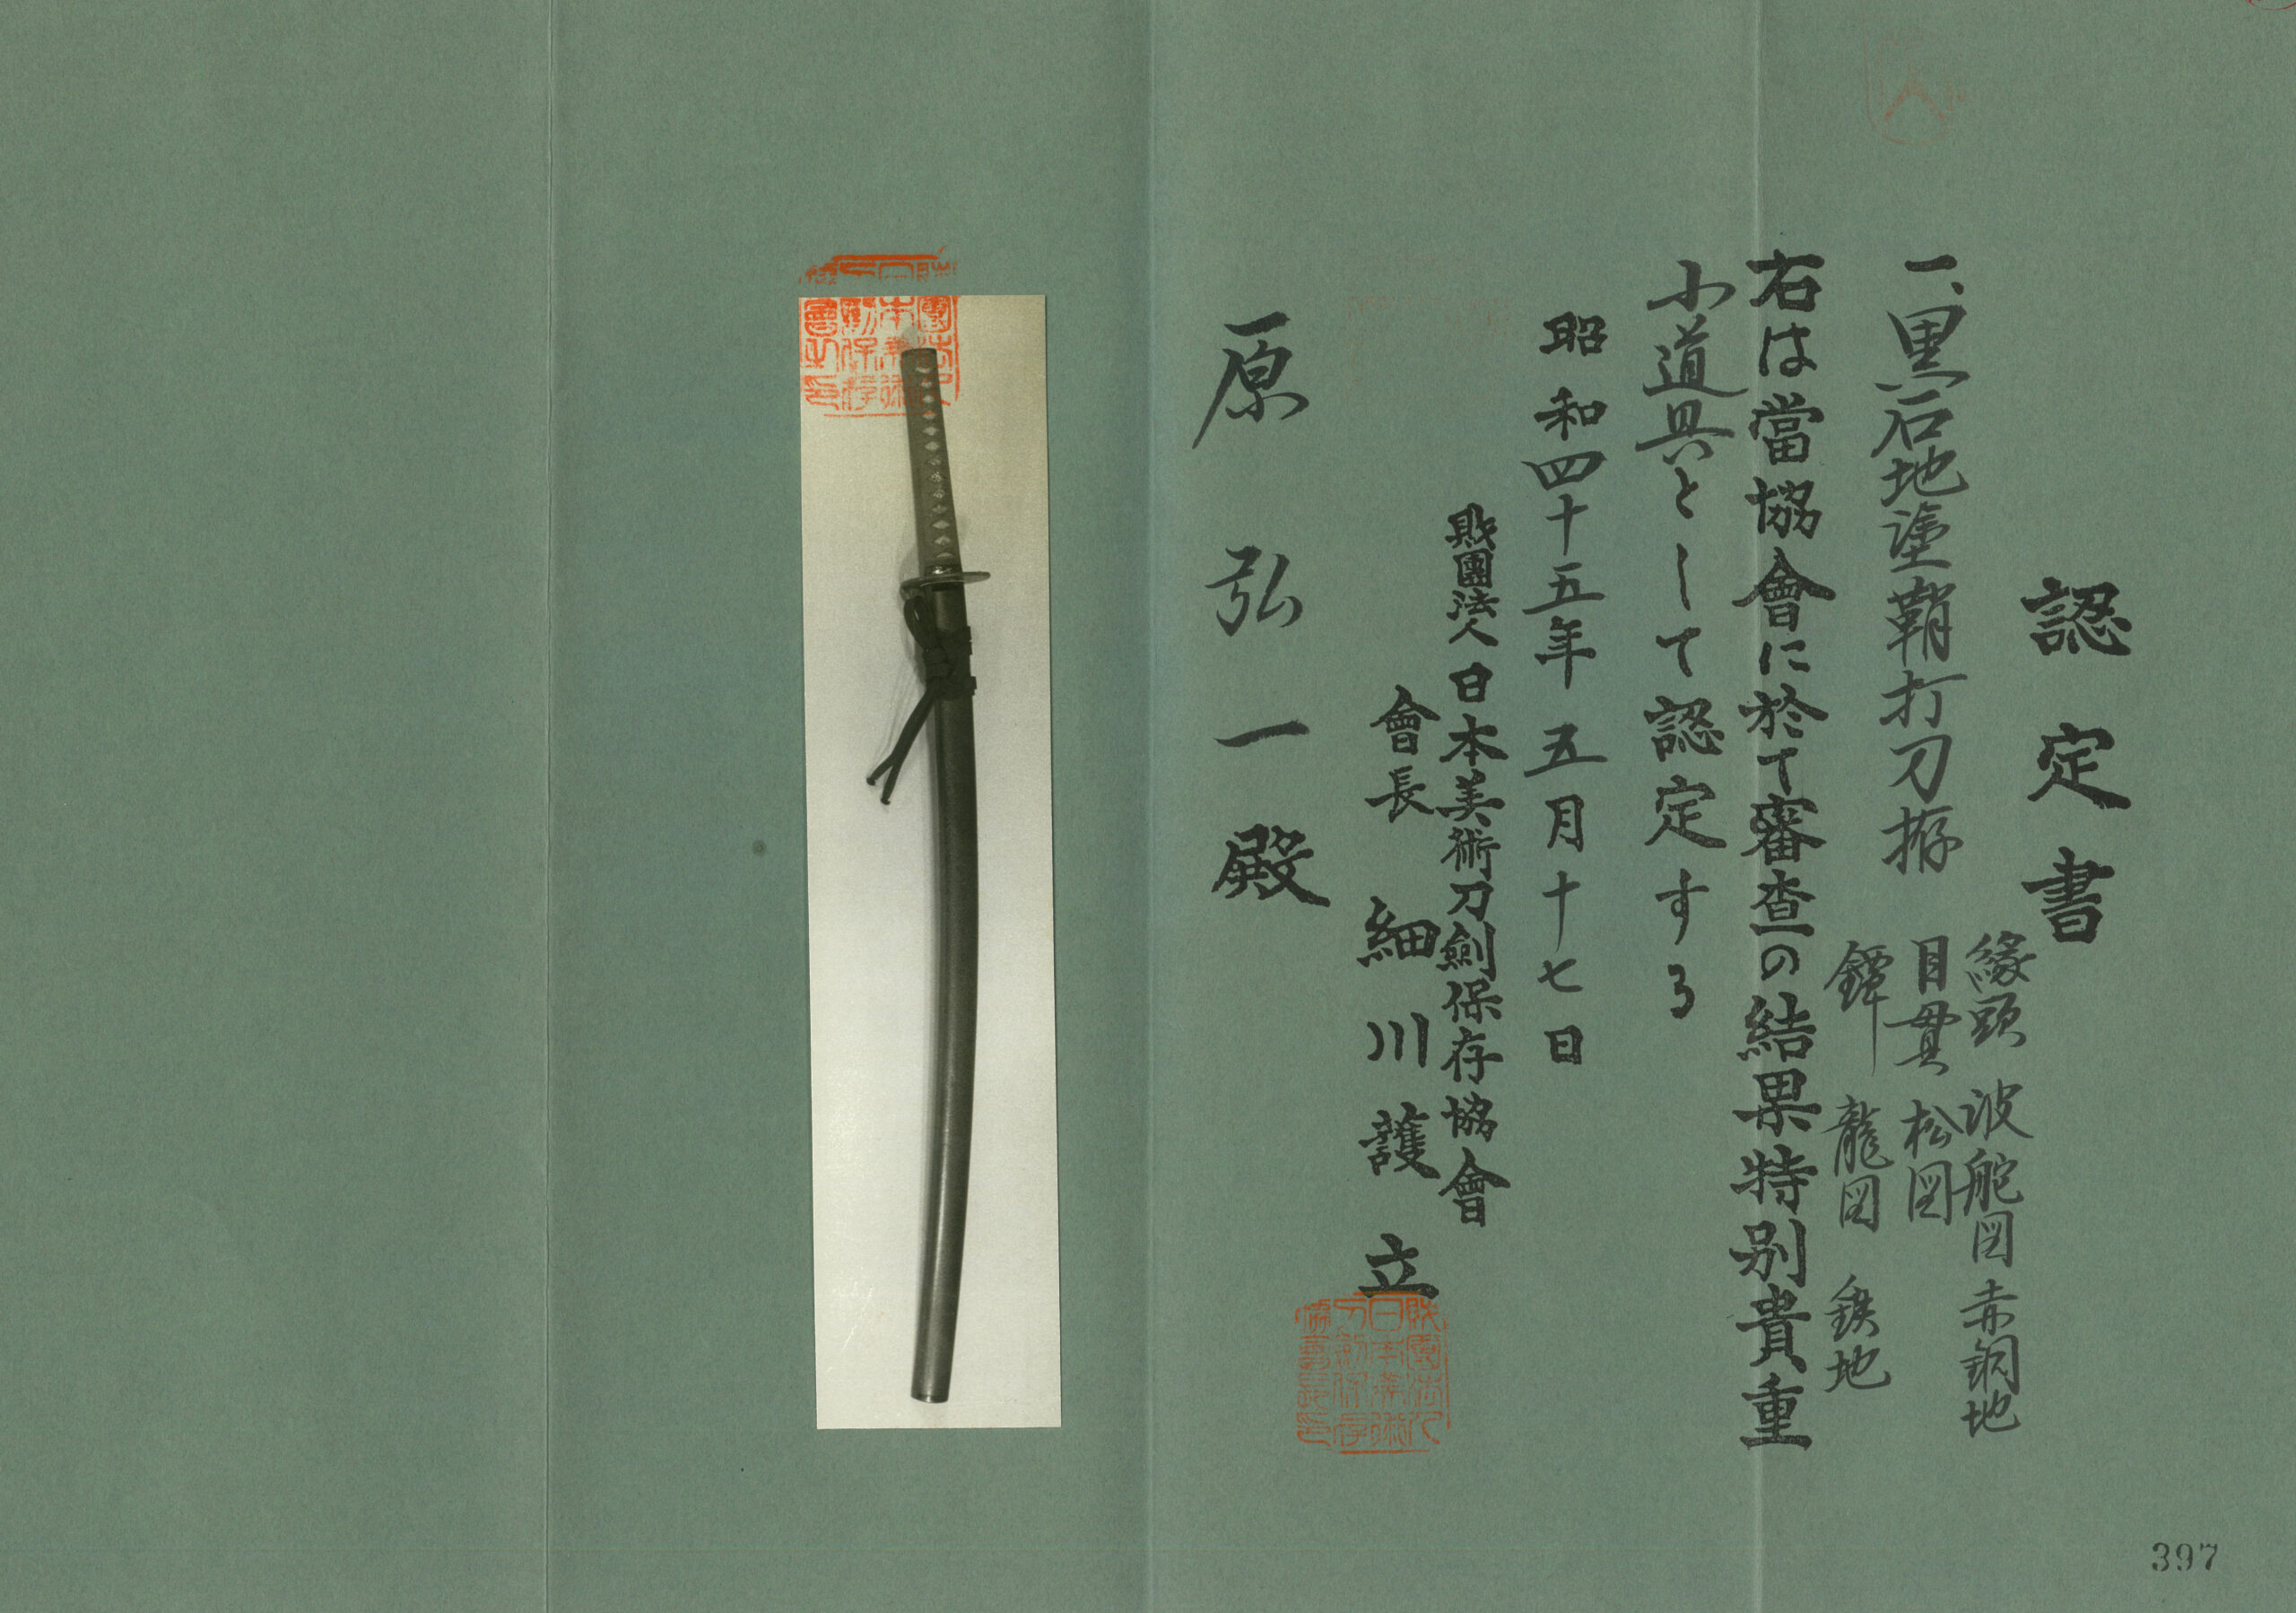 認定書
一、黒石地塗鞘打刀拵
縁頭 波舵図 赤銅地
目貫 松図
鐔 龍図 鉄地
右は當協會に於て審査の結果特別貴重
小道具として認定する
昭和四十五年五月十七日
財團法人日本美術刀劍保存協會
會長 細川護立
原弘一殿
397